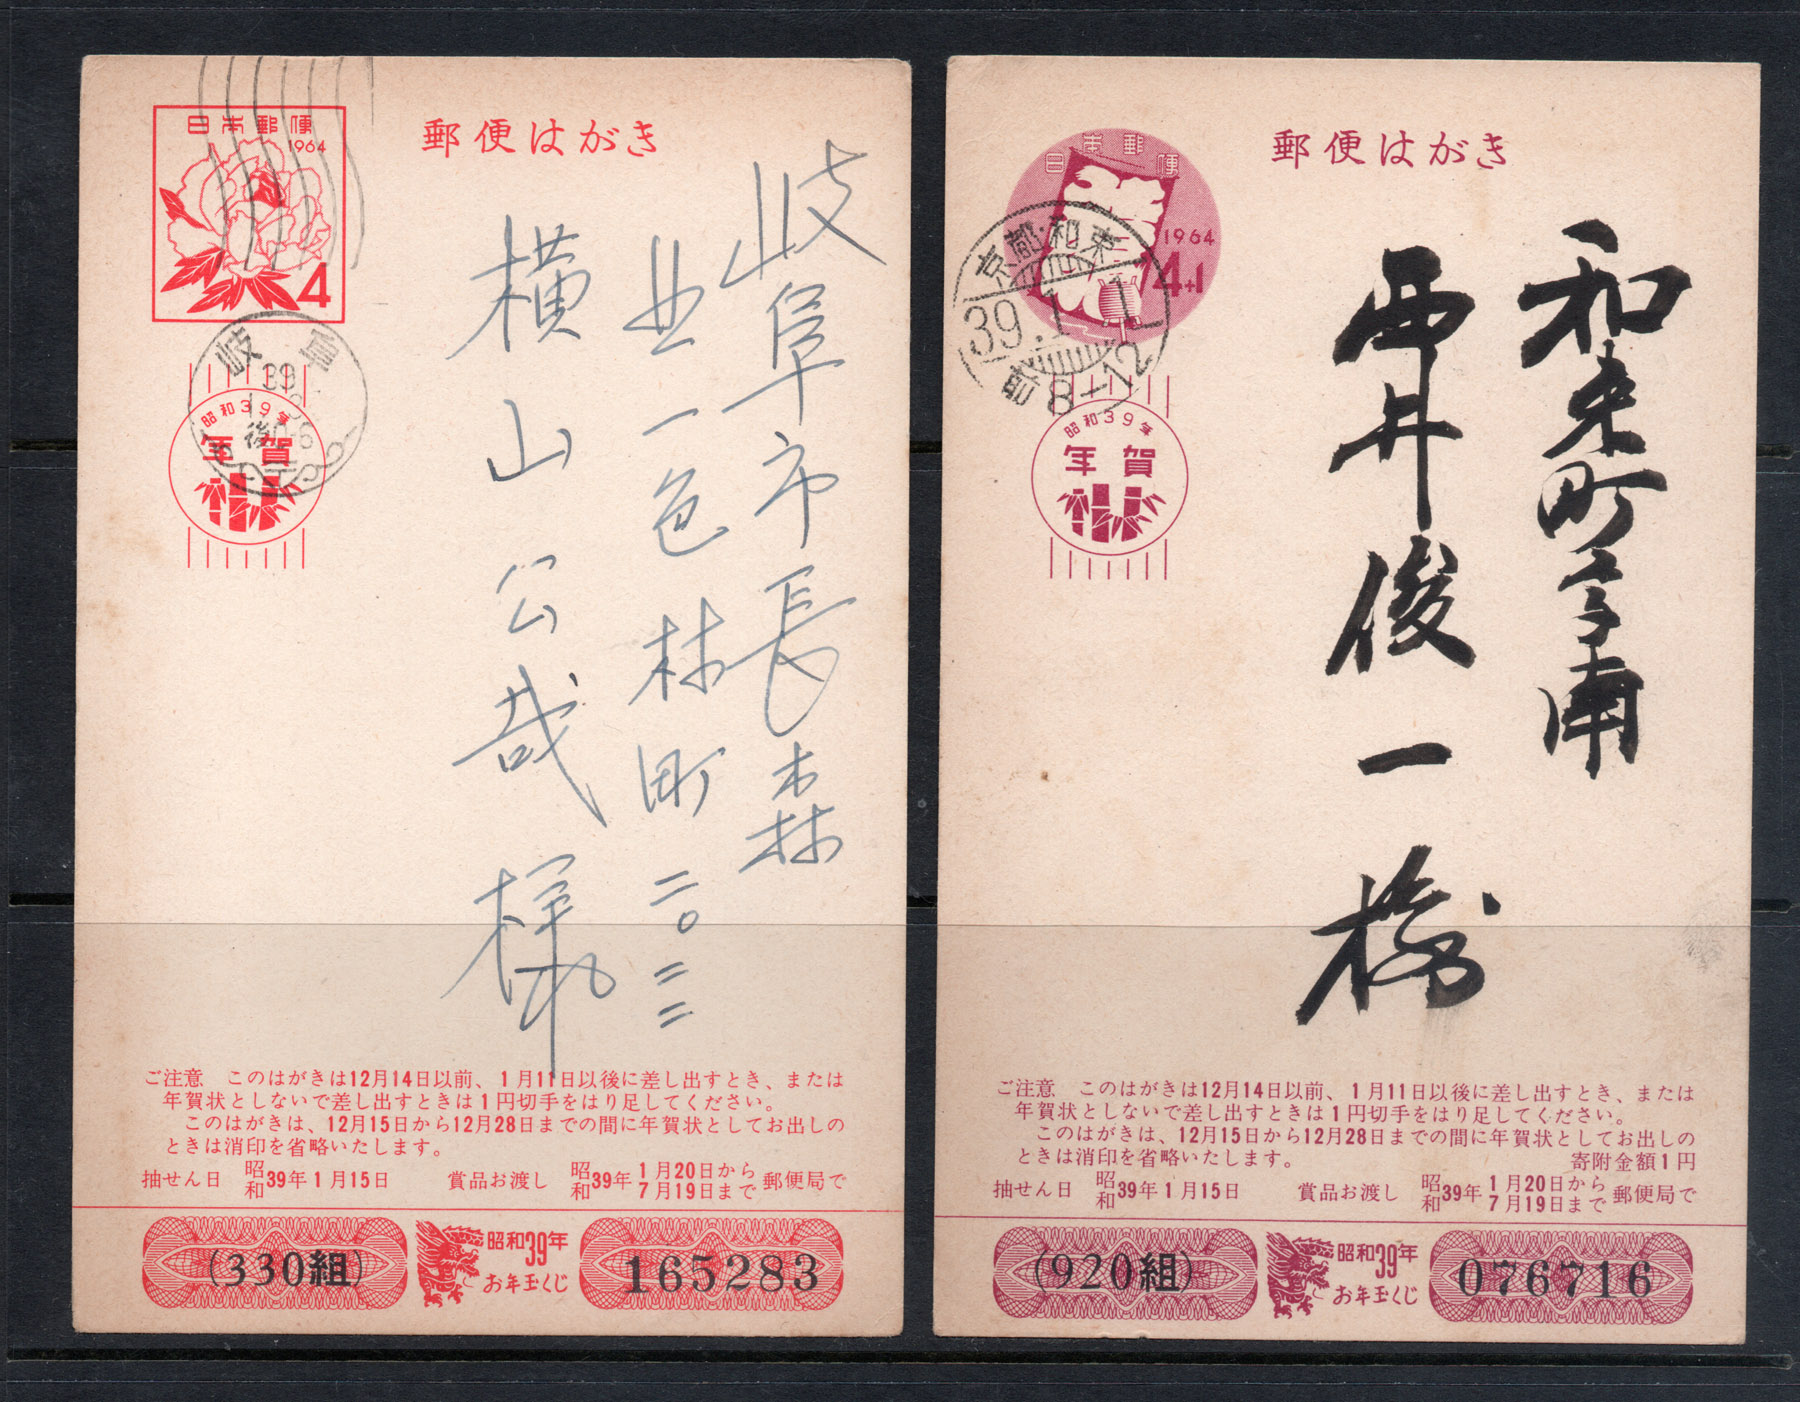 日本郵便
1964
4
郵便はがき
岐阜
39
後0-6
昭和39年
年賀
岐阜市長森
北一色林町二〇二二
横山公哉様
ご注意 このはがきは12月14日以前、1月11日以後に差し出すとき、または
年賀状としないで差し出すときは1円切手をはり足してください。
このはがきは、12月15日から12月28日までの間に年賀状としてお出しの
ときは消印を省略いたします。
抽せん日 昭和39年1月15日 賞品お渡し 昭和39年1月20日から7月19日まで郵便局で
(330組)
昭和39年
お年玉くじ
165283
日本郵便
1964
4+1
郵便はがき
京都・和束
39.1.1
前8-12
昭和39年
年賀
和束町字南
西井俊一様
ご注意 このはがきは12月14日以前、1月11日以後に差し出すとき、または
年賀状としないで差し出すときは1円切手をはり足してください。
このはがきは、12月15日から12月28日までの間に年賀状としてお出しの
ときは消印を省略いたします。 寄附金額1円
抽せん日 昭和39年1月15日 賞品お渡し 昭和39年1月20日から7月19日まで郵便局で
(920組)
昭和39年
お年玉くじ
076716